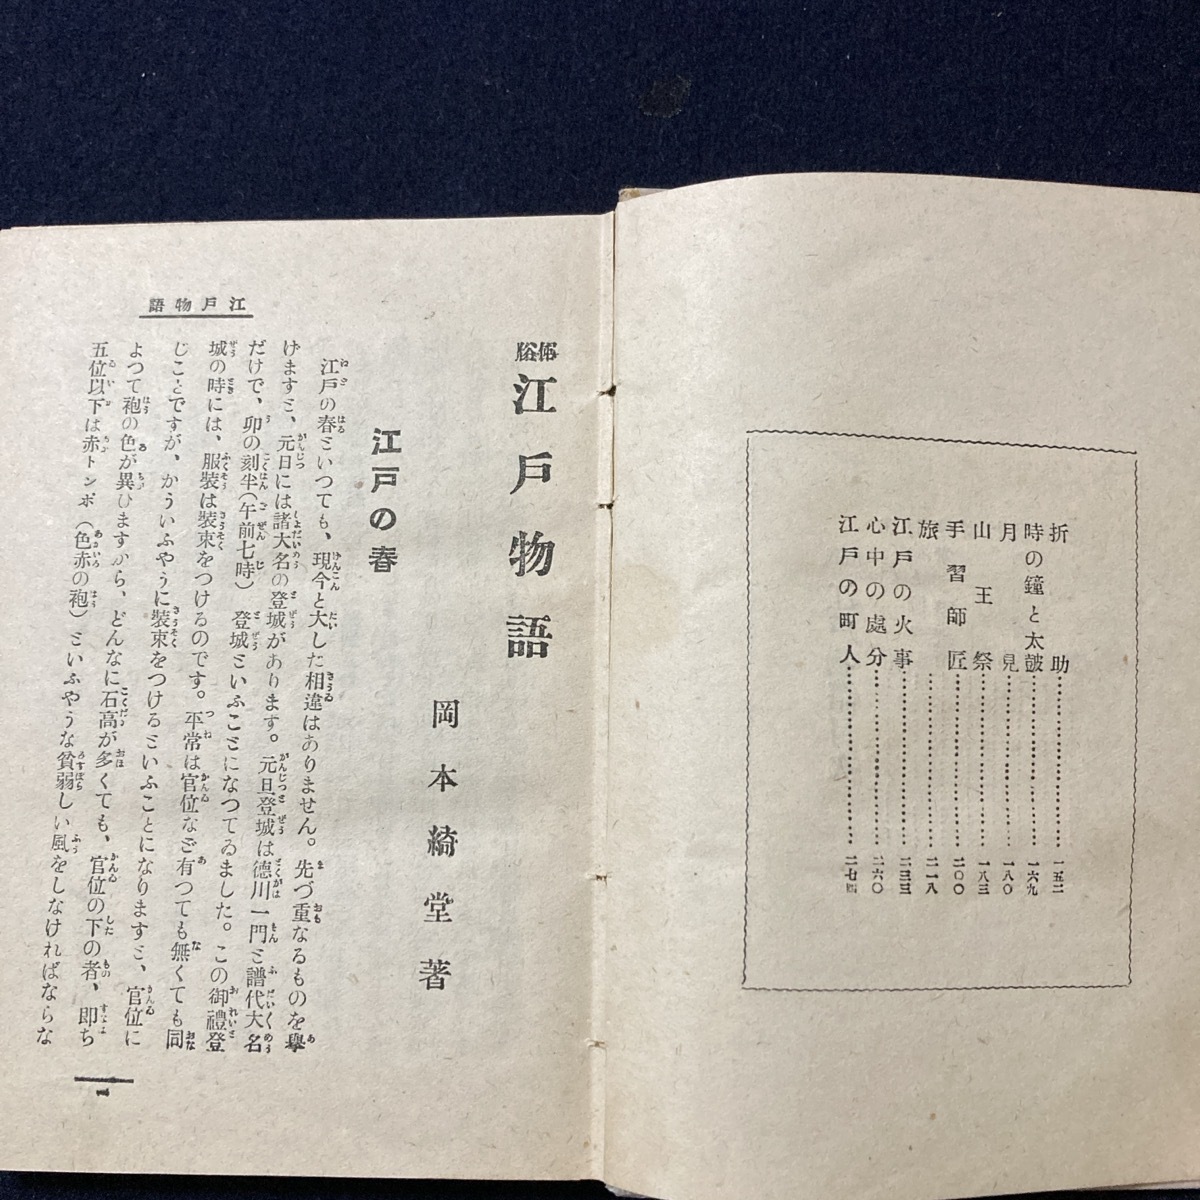 折助‥‥‥‥‥‥一五二
時の鐘と太皷‥‥‥‥‥‥一六九
月見‥‥‥‥‥‥一八〇
山王祭‥‥‥‥‥‥一八三
手習師匠‥‥‥‥‥‥二〇〇
旅‥‥‥‥‥‥二一八
江戸の火事‥‥‥‥‥‥二三三
心中の處分‥‥‥‥‥‥二六〇
江戸の町人‥‥‥‥‥‥二七四
江戸物語
江戸物語
岡本綺堂著
江戸の春
江戸の春といつても、現今と大した相違はありません。先づ重なるものを擧
げますと、元日には諸大名の登城があります。元旦登城は德川一門と譜代大名
だけで、卯の刻半(午前七時)登城といふことになつてゐました。この御禮登
城の時には、服裝は裝束をつけるのです。平常は官位など有つても無くても同
じことですが、かういふやうに裝束をつけるといふことになりますと、官位に
よつて袍の色が異ひますから、どんなに石高が多くても、官位の下の者、即ち
五位以下は赤トンボ(色赤の袍)といふやうな貧弱しい風をしなければならな
一